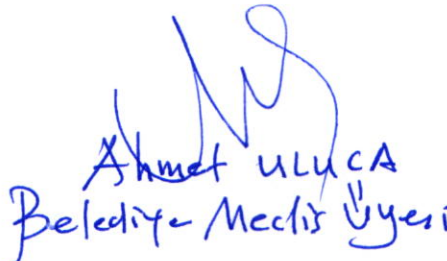 Ahmet ULUCA
Belediye Meclis Üyesi